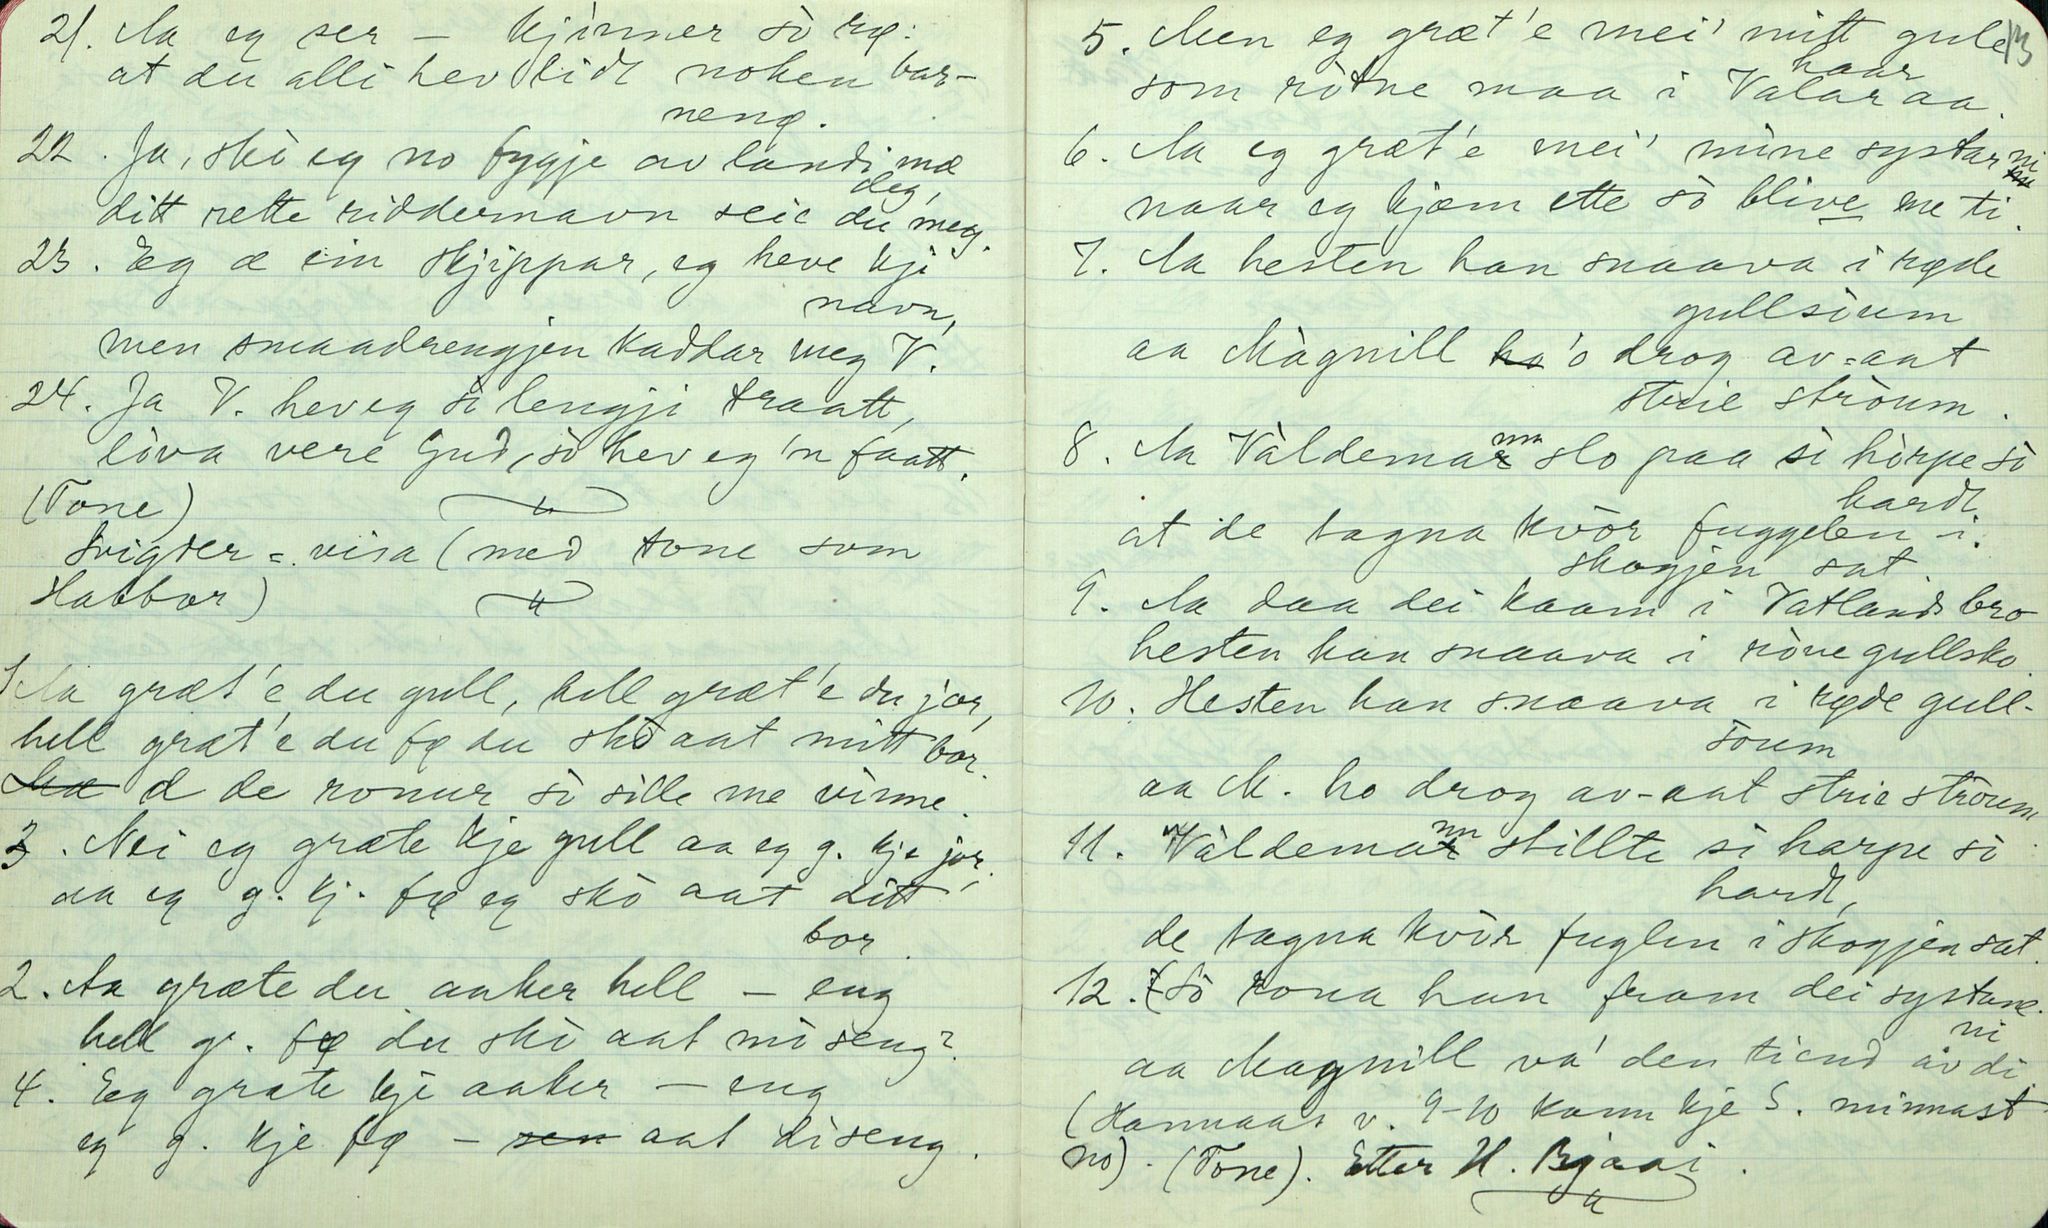 21. Aa eg ser — kjinner så ræ:
at du alli hev lidt noken bar-
neng.
22. Ja, skò eg no fyggje av landi mæ
deg,
ditt rette riddernavn seie du meg.
23. Eg æ ein skjippar, eg heve kje
navn,
men smaadrengjen kaddar meg V.
24. Ja V. hev eg så lengji traatt,
lòva vere Gud, sò hev eg 'n faatt.
(Tone)
Svigder = visa (med tone som
Habbor)
1 Aa græt'e du gull, hell græt'e du jor,
hell græt'e du fø du skò aat mitt
bor.
d de ronur så sille me vinne.
3. Nei eg græte kje gull aa eg g. kje jor,
aa eg g. kj. fø eg skò aat ditt
bor.
2. Aa græte du aaker hell — eng
hell g. fø du skò aat mi seng?
4. Eg græte kje aaker — eng
eg g. kje fø — aat di seng.
13
5. Men eg græt'e mei' mitt gule
haar
som ròtne maa i Valaraa.
6. Aa eg græt'e mei' mine systar ni
naar eg kjæm ette sò blive me ti.
7. Aa hesten han snaava i røde
gullsòum
aa Màgnill 'o drog av=aat
strie stròum.
8. Aa Vàldemann slo paa si hòrpe sò
hardt
at de tagna kvòr fuggelen i
skogjen sat.
9. Aa daa dei kaam i Vatlands bro
hesten han snaava i ròue gullsko.
10. Hesten han snaava i røde gull-
sòum
aa M. ho drog av-aat strie stròum
11. Vàldemann stillte si harpe sò
hardt,
de tagna kvòr fuglen i skogjen sat.
12. Sò rona han fram dei systane
ni
aa Magnill va' den tiend av di.
(Hannaas v. 9-10 kann kje S. minnast
no). (Tone). Etter H. Bjaai.